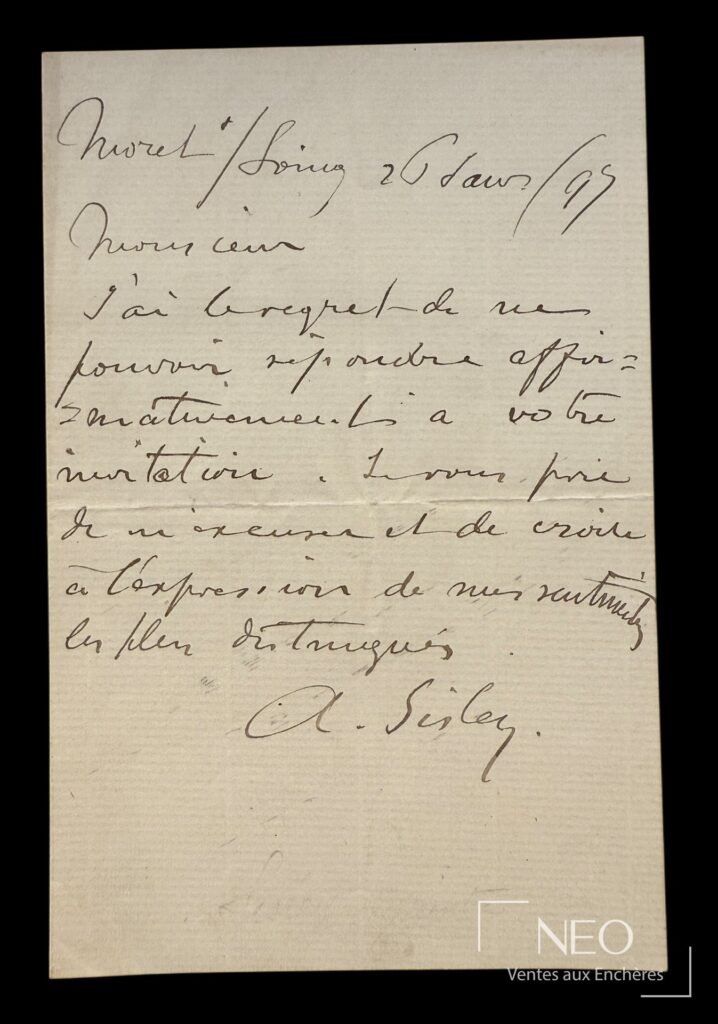 Moret s/Loing 26 Janv. /97
Monsieur
J'ai le regret de ne
pouvoir répondre affir=
=mativement à votre
invitation. Je vous prie
de m'excuser et de croire
à l'expression de mes sentiments
les plus distingués.
A. Sisley.
NEO
Ventes aux Enchères